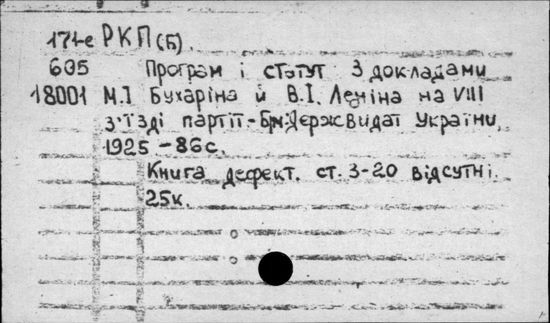 171-е РКП(Б).
605 Програм і статут з докладами
18001 М.І Бухаріна й В.І. Леніна на VIII
з'їзді партії.- Держвидат України
1925 - 86 с.
Книга дефект. ст. 3-20 відсутні.
25к.